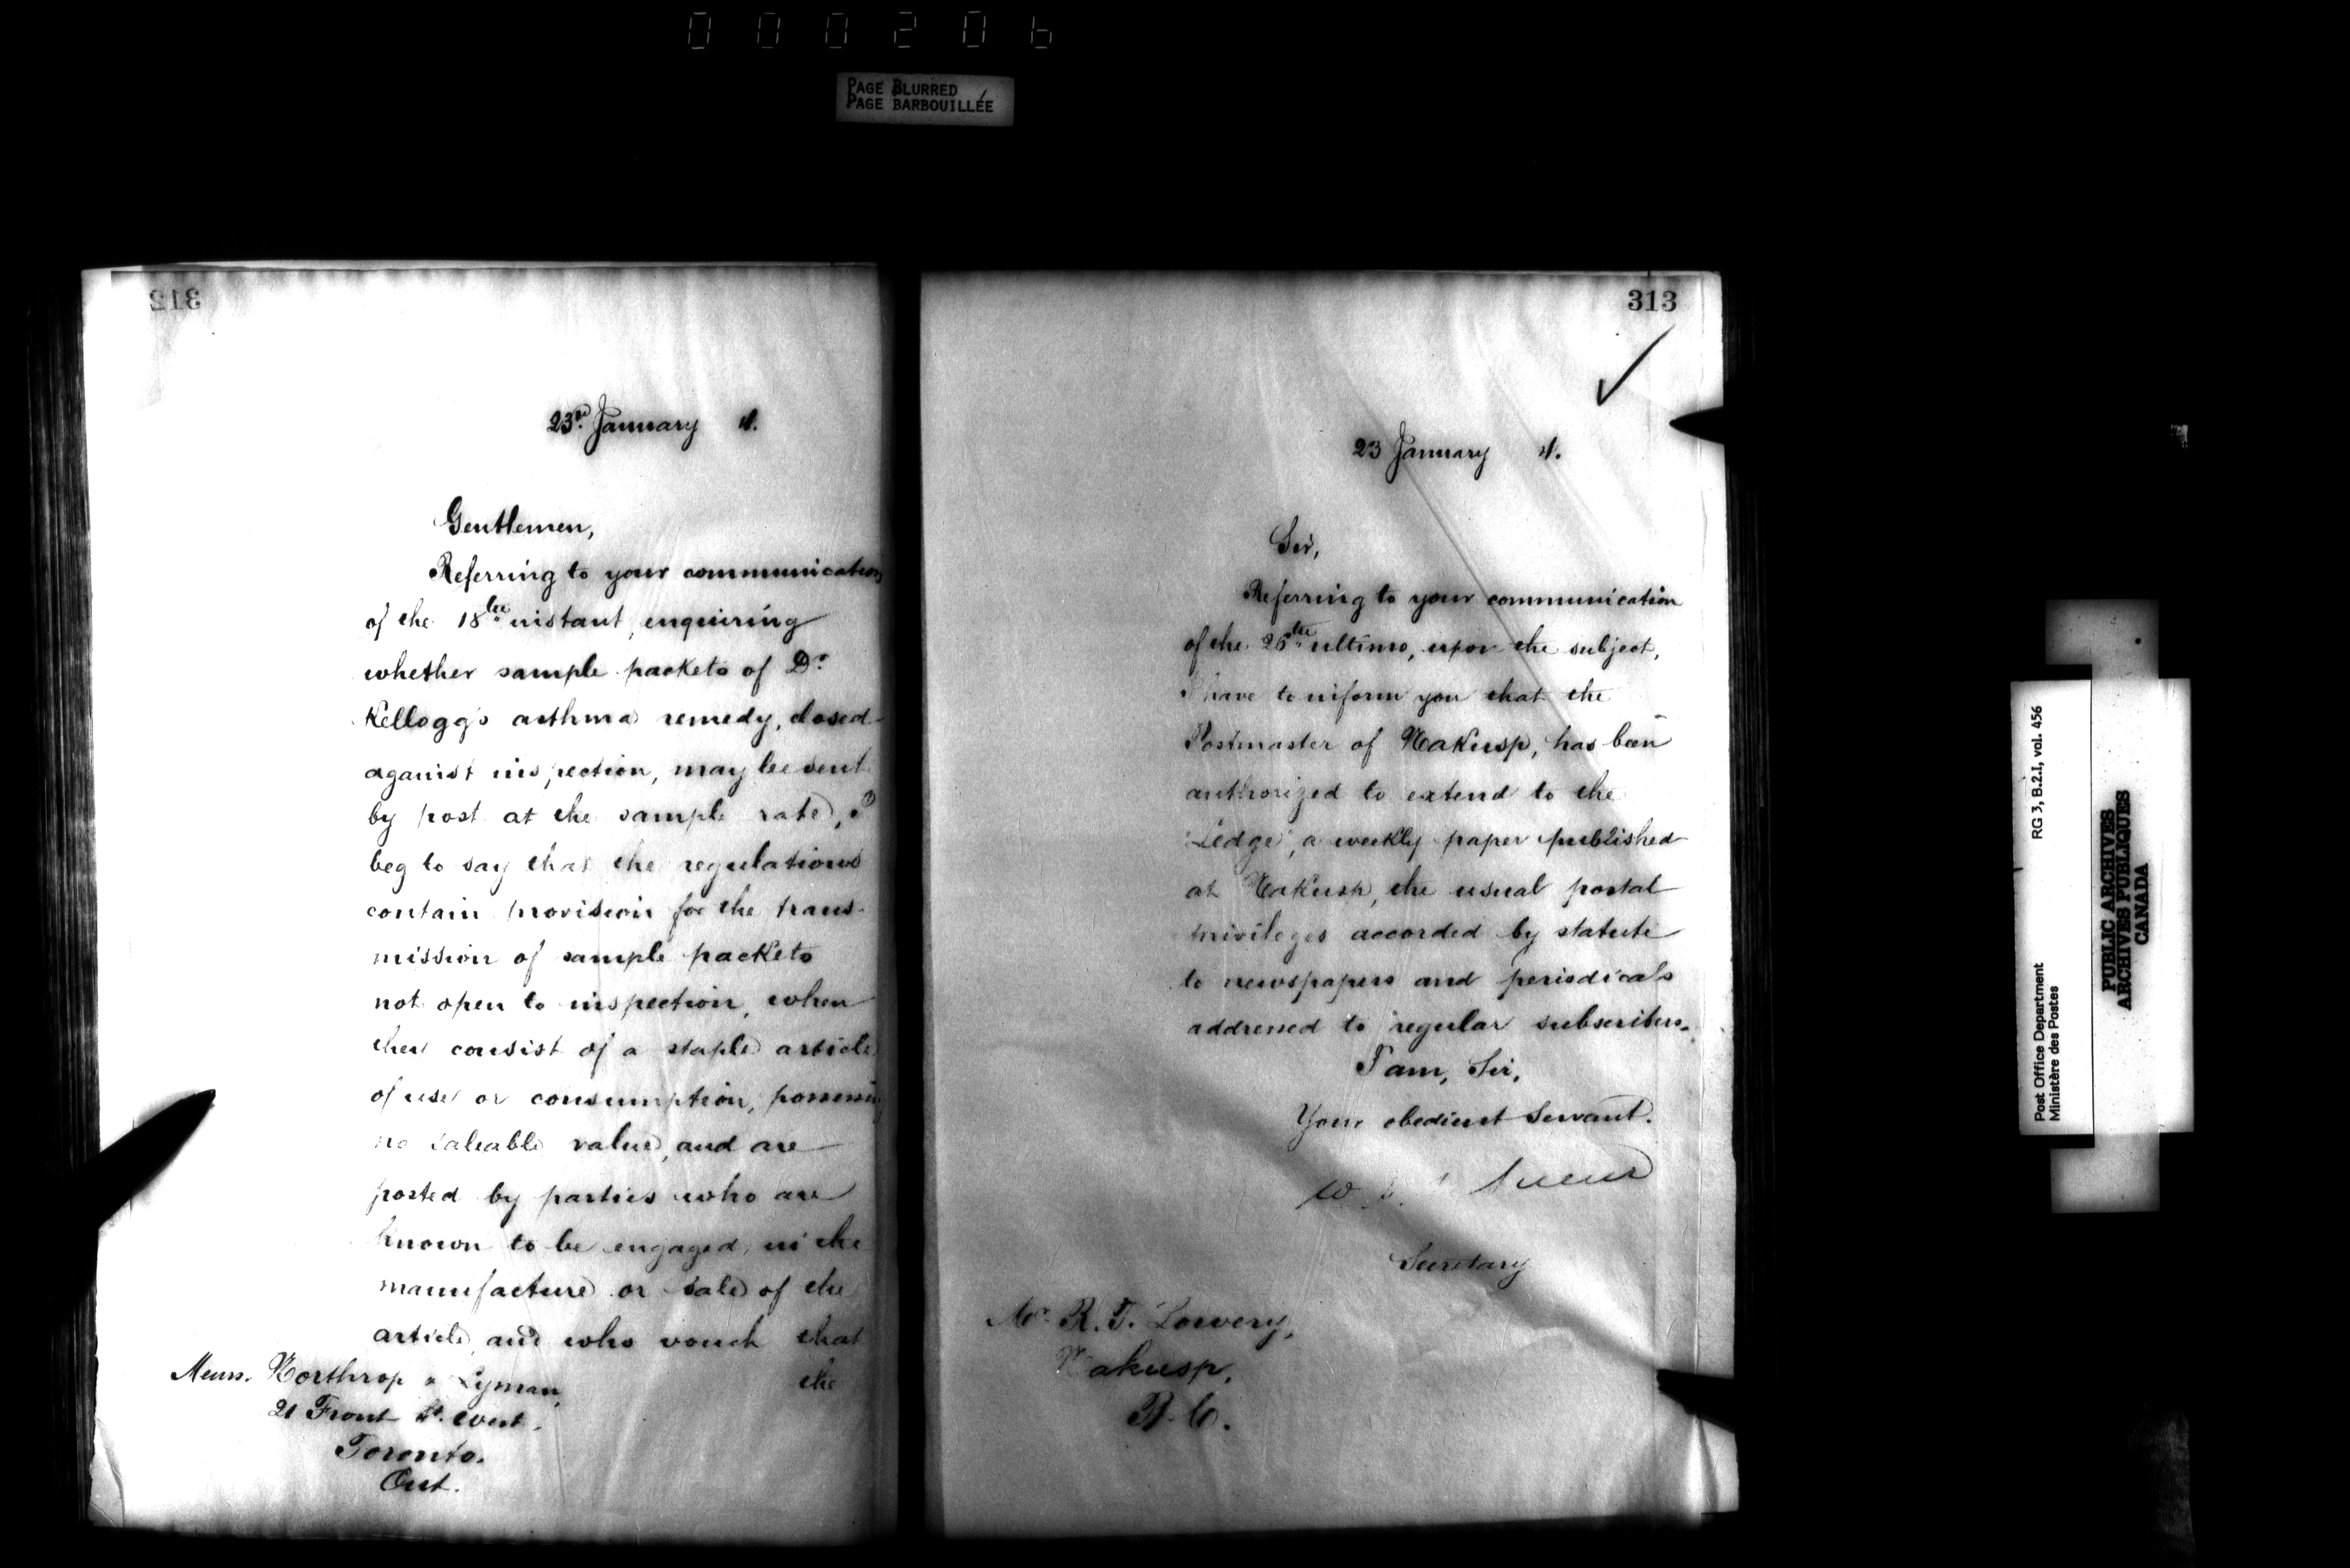 000206
PAGE BLURRED
PAGE BARBOUILLÉE
312
23rd January 4.
Gentlemen,
Referring to your communication
of the 18th instant, enquiring
whether sample packets of Dr.
Kellogg's asthma remedy, closed
against inspection, may be sent
by post at the sample rate, I
beg to say that the regulations
contain provision for the trans-
mission of sample packets
not open to inspection, when
they consist of a staple article
of use or consumption, possessing
no saleable value, and are
posted by parties who are
known to be engaged in the
manufacture or sale of the
article and who vouch that
the
Messrs. Northrop & Lyman,
21 Front St. West.
Toronto.
Ont.
313
23 January 4.
Sir,
Referring to your communication
of the 26th ultimo, upon the subject,
I have to inform you that the
Postmaster of Nakusp, has been
authorized to extend to the
"Ledge", a weekly paper published
at Nakusp, the usual postal
privileges accorded by statute
to newspapers and periodicals
addressed to regular subscribers.
I am, Sir,
Your obedient Servant.
W. Sueur
Secretary
Mr. R. T. Lowery,
Nakusp,
B.C.
RG 3, B.2.I, vol. 456
Post Office Department
Ministère des Postes
PUBLIC ARCHIVES
ARCHIVES PUBLIQUES
CANADA